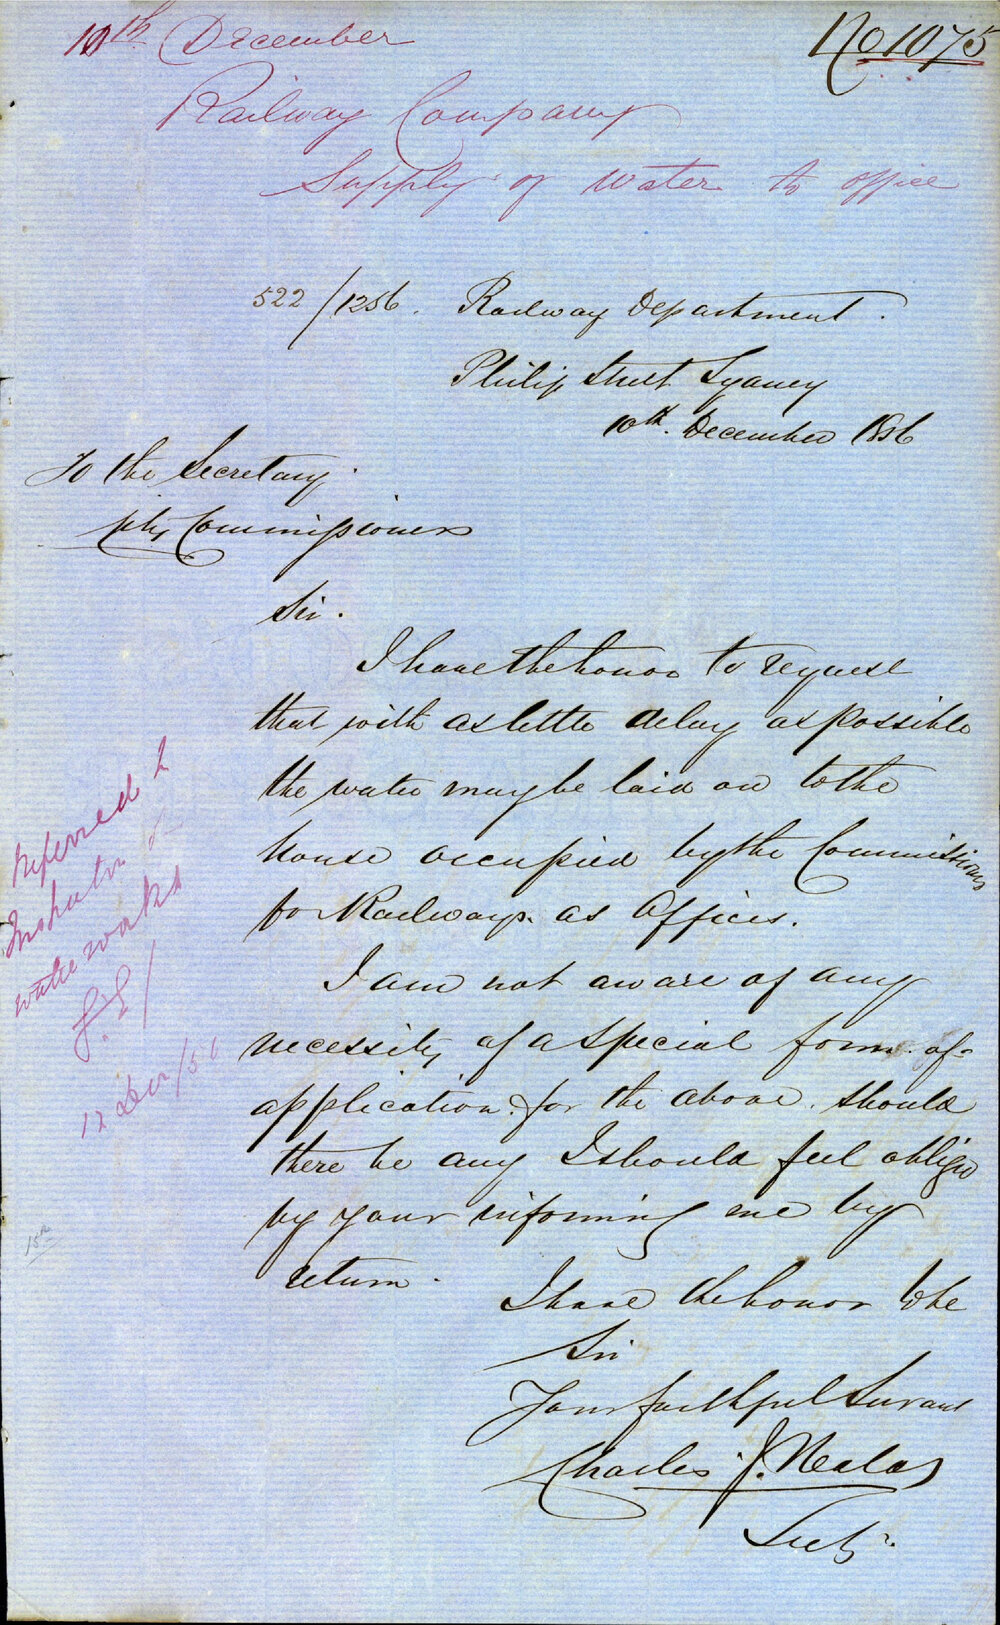 10th December
No 1075
Railway Company
Supply of water to office
522/1256. Railway Department.
Philip Street Sydney
10th. December 1856
To the Secretary
City Commissioners
Sir.
I have the honor to request
that with as little delay as possible
the water may be laid on to the
house occupied by the Commissioners
for Railways as Offices.
I am not aware of any
necessity of a special form of
application for the above. Should
there be any I should feel obliged
by your informing me by
return.
I have the honor to be
Sir
Your faithful Servant
Charles J. Nealds
Secy.
Referred to
Inspector of
water works
12 Decr/56
15th